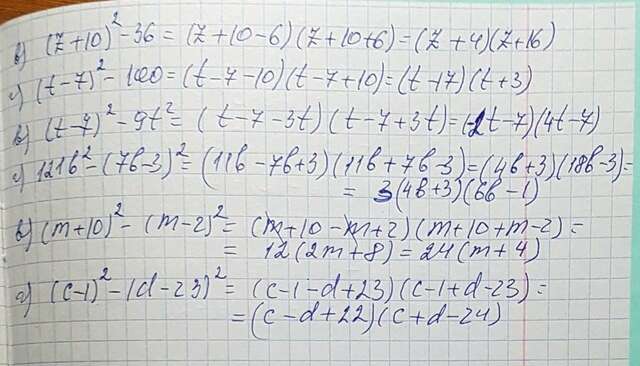 в) (z+10)² - 36 = (z+10-6)(z+10+6) = (z+4)(z+16)
г) (t-7)² - 100 = (t-7-10)(t-7+10) = (t-17)(t+3)
в) (t-7)² - 9t² = (t-7-3t)(t-7+3t) = (-2t-7)(4t-7)
г) 121b² - (7b-3)² = (11b-7b+3)(11b+7b-3) = (4b+3)(18b-3) =
= 3(4b+3)(6b-1)
в) (m+10)² - (m-2)² = (m+10-m+2)(m+10+m-2) =
= 12(2m+8) = 24(m+4)
г) (c-1)² - (d-23)² = (c-1-d+23)(c-1+d-23) =
= (c-d+22)(c+d-24)